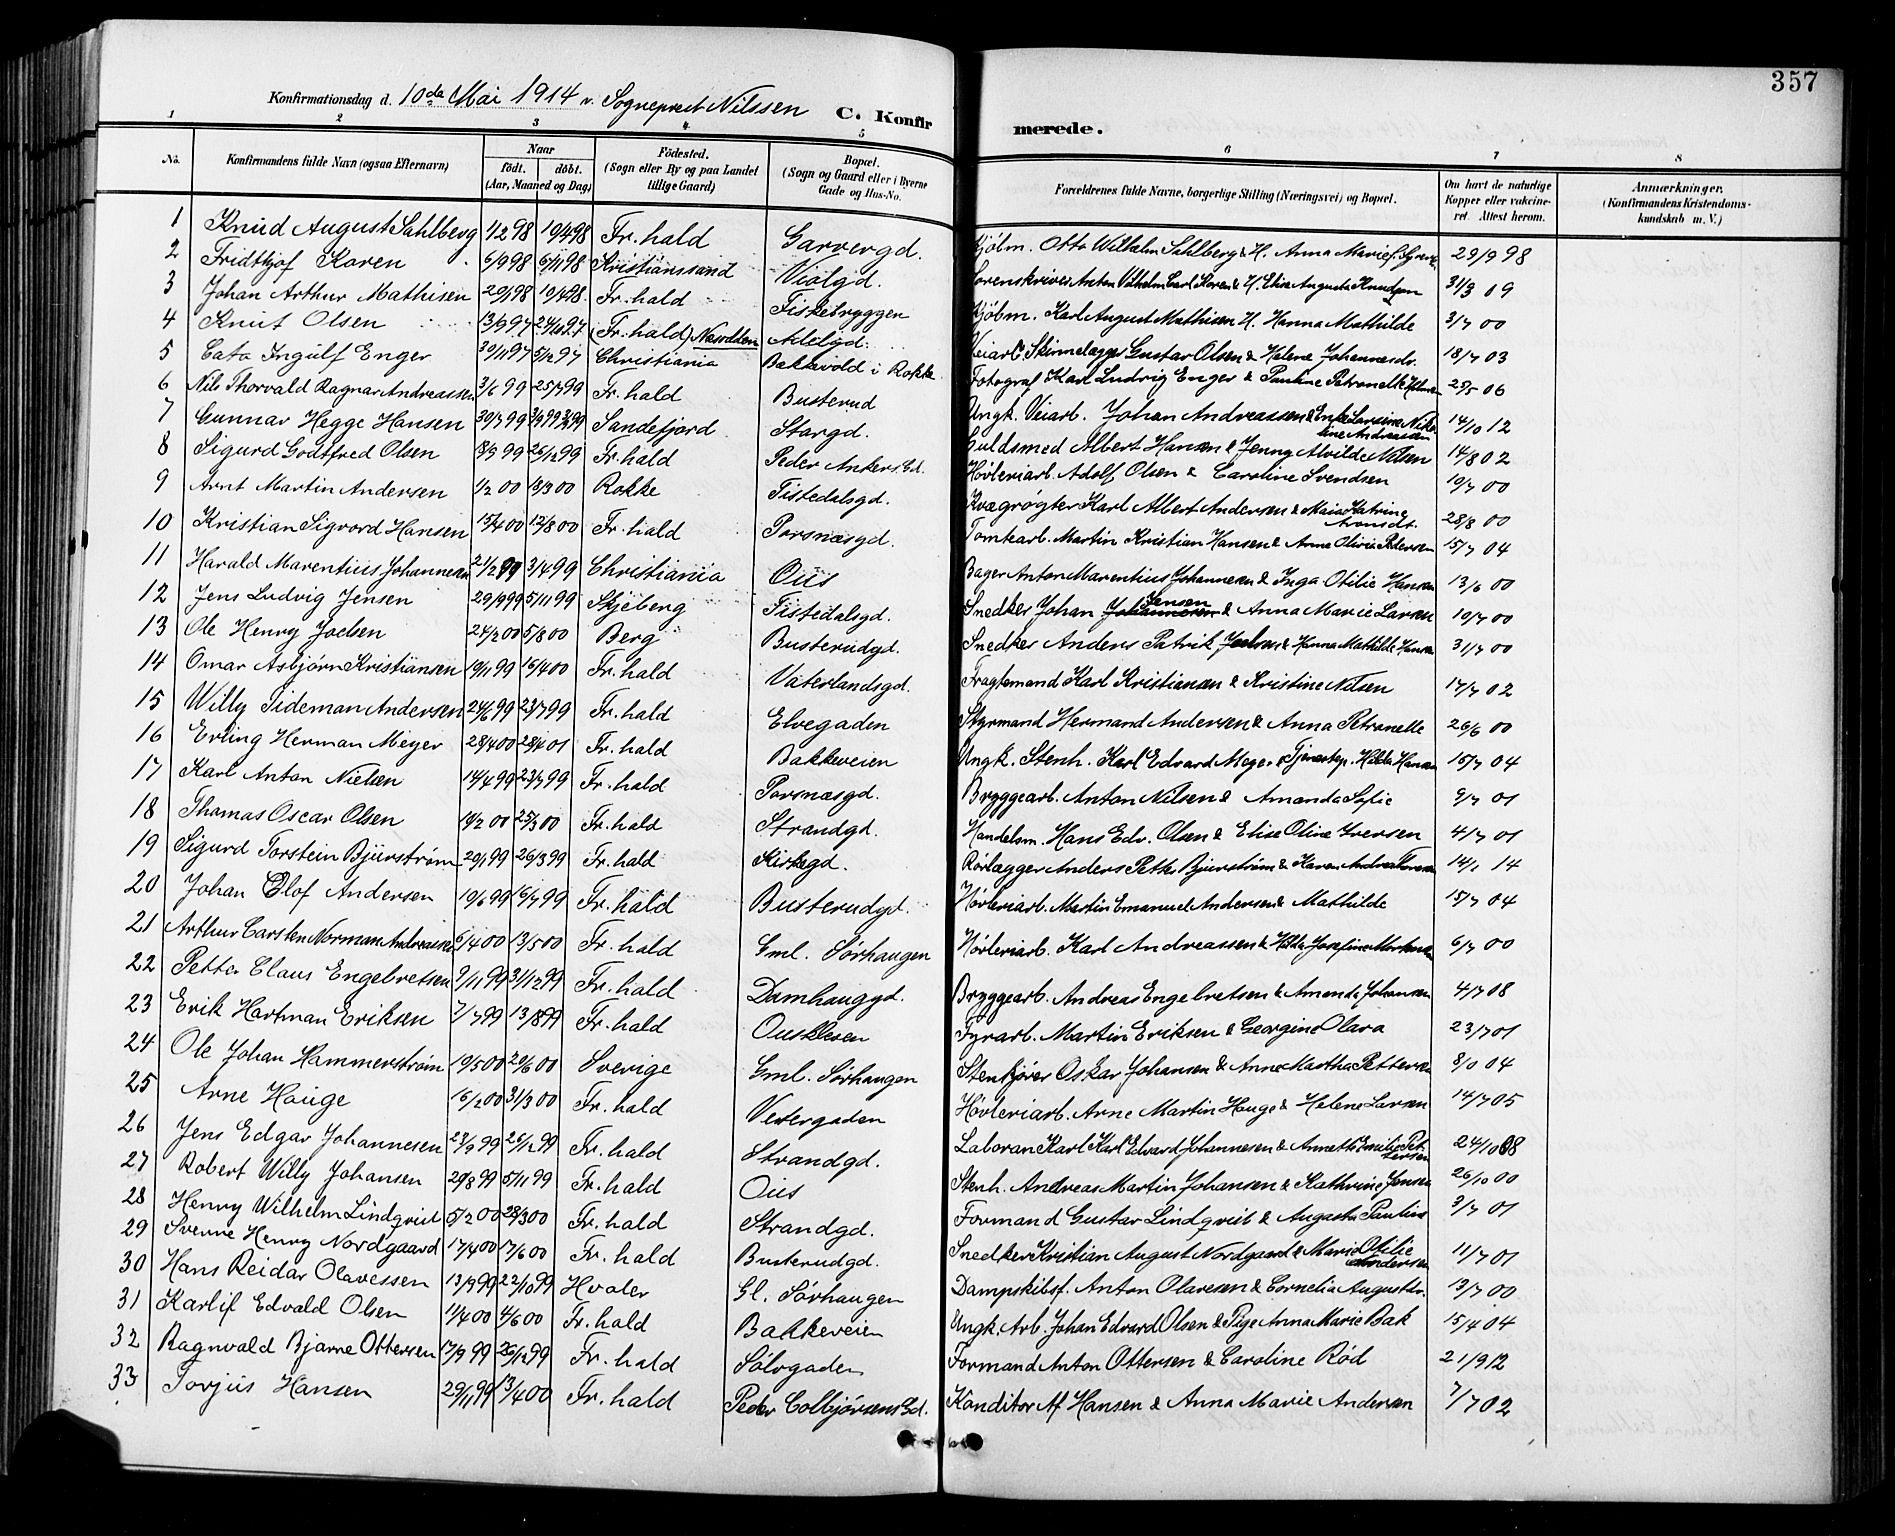 357
Konfirmationsdag d. 10de Mai 1914 v. Sogneprest Nilssen C. Konfirmerede.
1 2 3 4 5 6 7 8
No. Konfirmandens fulde Navn (ogsaa Efternavn) Naar födt. döbt. (Aar, Maaned og Dag) Födested. (Sogn eller By og paa Landet tillige Gaard) Bopæl. (Sogn og Gaard eller i Byerne Gade og Hus-No. Forældrenes fulde Navne, borgerlige Stilling (Næringsvei) og Bopæl. Om havt de naturlige Kopper eller vakcineret. Attest herom. Anmærkninger. (Konfirmandens Kristendomskundskab m. V.)
1 Knud August Sahlberg 1/2 98 10/4 98 Fr.hald Garvergd. Kjøbm. Otto Wilhelm Sahlberg & H. Anna Marie 29/9 98
2 Fridthjof Koren 6/9 98 6/11 98 Kristianssand Violgd. Sorenskriver Anton Vilhelm Carl Koren & H. Elise Augusta Knudsen 31/3 09
3 Johan Arthur Mathisen 20/1 98 10/4 98 Fr.hald Fiskebryggen Kjøbm. Karl August Mathisen H. Hanna Mathilde 3/7 00
4 Knut Olsen 13/9 97 24/10 97 (Fr.hald) Næsodden Adelgd. Veiarb. Skinnelægger Gustav Olsen & Helene Johannesdr. 18/7 03
5 Cato Ingulf Enger 30/11 97 5/12 97 Christiania Bakkevold i Rokke Fotograf Karl Ludvig Enger & Pauline Petronelle Holmsen 25/5 06
6 Nils Thorvald Ragnar Andreassen 3/6 99 25/7 99 Fr.hald Busterud Ungk. Veiarb. Johan Andreassen & Enke Lovise Nikoline Andreassen 14/10 12
7 Gunnar Hegge Hansen 30/7 99 3/9 99 Sandefjord Storgd. Guldsmed Albert Hansen & Jenny Alvilde Nilsen 14/8 02
8 Sigurd Godtfred Olsen 8/9 99 26/12 99 Fr.hald Peder Ankers Gd. Høvleriarb. Adolf Olsen & Caroline Svendsen 10/7 00
9 Arnt Martin Andersen 1/2 00 18/3 00 Rokke Tistedalsgd. Kvægrøgter Karl Albert Andersen & Maia Katrine Aronsdt. 28/8 00
10 Kristian Sigvord Hansen 15/4 00 12/8 00 Fr.hald Porsnæsgd. Tomtearb. Martin Kristian Hansen & Anne Olivia Pedersen 15/7 04
11 Harald Marentius Johannesen 21/2 99 3/4 99 Christiania Ous Bager Anton Marentius Johannesen & Inga Otilie Hansen 13/6 00
12 Jens Ludvig Jensen 29/9 99 5/11 99 Skjeberg Tistedalsgd. Snedker Johan Johannesen Jensen & Anna Marie Larsen 10/7 00
13 Ole Henry Joelsen 24/2 00 5/8 00 Berg Busterudgd. Snedker Anders Patrik Joelsen & Hanna Mathilde Hansen 31/7 00
14 Omar Asbjørn Kristiansen 19/11 99 16/4 00 Fr.hald Vaterlandsgd. Fragtemand Karl Kristiansen & Kristine Nilsen 17/7 02
15 Willy Tideman Andersen 24/6 99 23/7 99 Fr.hald Elvegaden Styrmand Hermand Andersen & Anna Petronelle 26/6 00
16 Erling Herman Meyer 28/4 00 28/4 01 Fr.hald Bakkeveien Ungk. Stenh. Karl Edvard Meyer & Tjenestep. Hilda Hansen 15/7 04
17 Karl Anton Nielsen 14/4 99 23/7 99 Fr.hald Porsnæsgd. Bryggearb. Anton Nilsen & Amanda Sofie 9/7 01
18 Thomas Oscar Olsen 10/2 00 25/3 00 Fr.hald Strandgd. Handelsm. Hans Edv. Olsen & Elise Oline Iversen 4/7 01
19 Sigurd Torstein Bjurstrøm 29/1 99 26/3 99 Fr.hald Kirkegd. Rørlægger Anders Petter Bjurstrøm & Karen Andrea 14/1 14
20 Johan Olof Andersen 10/6 99 16/7 99 Fr.hald Busterudgd. Høvleriarb. Martin Emanuel Andersen & Mathilde 15/7 04
21 Arthur Carsten Norman Andreassen 6/4 00 13/5 00 Fr.hald Gml. Sørhaugen Høvleriarb. Karl Andreassen & Hilda Josefine Mortensen 6/7 00
22 Petter Claus Engebretsen 9/11 99 31/12 99 Fr.hald Damhauggd. Bryggearb. Andreas Engebretsen & Amanda Johansen 4/7 08
23 Erik Hartman Eriksen 2/7 99 13/8 99 Fr.hald Ouskleven Fyrarb. Martin Eriksen & Georgine Olava 23/7 01
24 Ole Johan Hammerstrøm 19/5 00 20/6 00 Sverige Gml. Sørhaugen Stenkjører Oskar Johansen & Anne Martha Pettersen 8/10 04
25 Arne Hauge 16/2 00 31/3 00 Fr.hald Vestergaden Høvleriarb. Arne Martin Hauge & Helene Larsen 14/7 05
26 Jens Edgar Johannesen 23/9 99 26/12 99 Fr.hald Strandgd. Laboran Karl Karl Edvard Johannesen & Annette Emilie Pettersen 24/10 08
27 Robert Willy Johansen 29/8 99 5/11 99 Fr.hald Ous Stenh. Andreas Martin Johansen & Kathrine Jensen 26/10 00
28 Henry Wilhelm Lindqvist 5/2 00 28/3 00 Fr.hald Strandgd. Formand Gustav Lindqvist & Augusta Pauline 3/7 01
29 Sverre Henry Nordgaard 17/4 00 17/6 00 Fr.hald Busterudgd. Snedker Kristian August Nordgaard & Marie Otilie Andersen 11/7 01
30 Hans Reidar Olavessen 13/9 99 22/10 99 Hvaler Gl. Sørhaugen Dampskibsf. Anton Olavesen & Cornelia Augustav. 13/7 00
31 Karlif Edvald Olsen 11/4 00 4/6 00 Fr.hald Bakkeveien Ungk. Arb. Johan Edvard Olsen & Pige Anna Marie Bak 15/4 04
32 Ragnvald Bjarne Ottersen 17/9 99 26/12 99 Fr.hald Sølvgaden Formand Anton Ottersen & Caroline Rød 21/9 12
33 Torjus Hansen 29/11 99 13/4 00 Fr.hald Peder Colbjørsens Gd. Konditor Af Hansen & Anna Marie Andersen 7/7 02